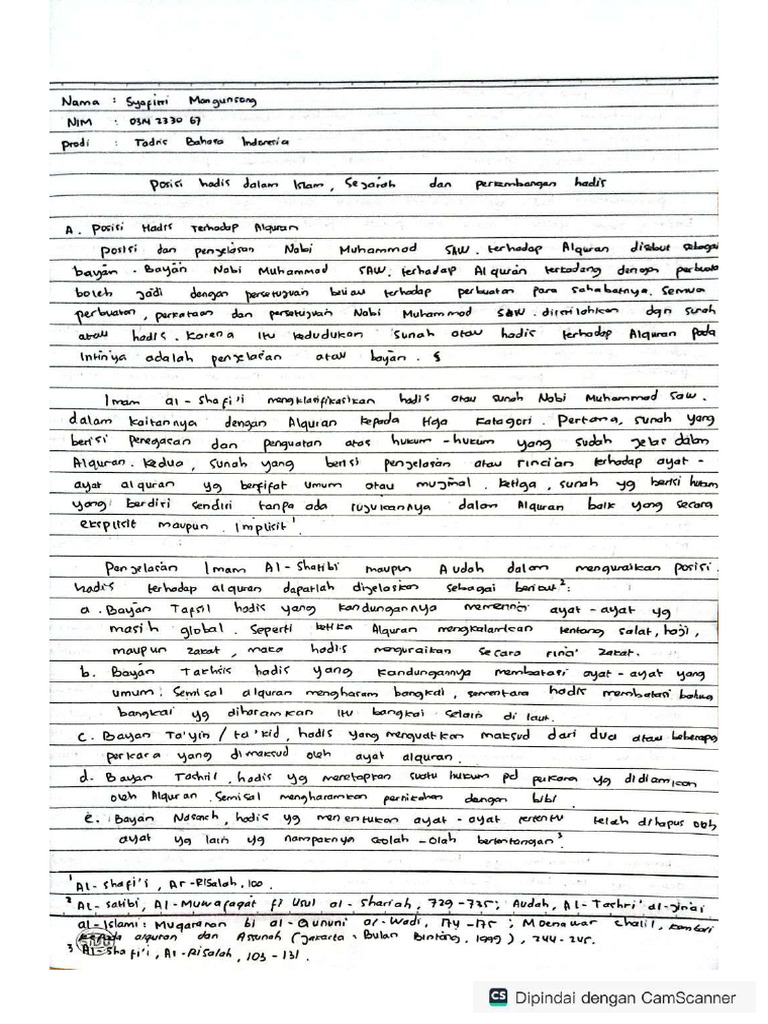 Nama : Syafitri Mangunsong
NIM : 0314 2330 67
Prodi : Tadris Bahasa Indonesia
Posisi hadis dalam Islam, Sejarah dan perkembangan hadis
A. Posisi Hadis Terhadap Alquran
Posisi dan penjelasan Nabi Muhammad SAW. terhadap Alquran disebut sebagai
bayān. Bayān Nabi Muhammad SAW. terhadap Alquran terkadang dengan perbuatan
boleh jadi dengan persetujuan beliau terhadap perbuatan para sahabatnya. Semua
perbuatan, perkataan dan persetujuan Nabi Muhammad SAW. diistilahkan dgn sunah
atau hadis. Karena itu kedudukan sunah atau hadis terhadap Alquran pada
intinya adalah penjelasan atau bayan.
Imam al-Shafi'i mengklasifikasikan hadis atau sunah Nabi Muhammad saw.
dalam kaitannya dengan Alquran kepada tiga katagori. Pertama, sunah yang
berisi penegasan dan penguatan atas hukum-hukum yang sudah jelas dalam
Alquran. Kedua, sunah yang berisi penjelasan atau rincian terhadap ayat-
ayat alquran yg bersifat umum atau mujmal. Ketiga, sunah yg berisi hukum
yang berdiri sendiri tanpa ada rujukannya dalam Alquran baik yang secara
eksplisit maupun implisit¹.
Penjelasan Imam Al-Shatibi maupun Audah dalam menguraikan posisi
hadis terhadap alquran dapatlah dijelaskan sebagai berikut²:
a. Bayān Tafsil hadis yang kandungannya memerinci ayat-ayat yg
masih global. Seperti ketika Alquran mengkalamkan tentang salat, haji,
maupun zakat, maka hadis menguraikan secara rinci zakat.
b. Bayān Takhsis hadis yang kandungannya membatasi ayat-ayat yang
umum. Semisal alquran mengharam bangkai, sementara hadis membatasi bahwa
bangkai yg diharamkan itu bangkai selain di laut.
c. Bayan Ta'yin / ta'kid, hadis yang menguatkan maksud dari dua atau beberapa
perkara yang dimaksud oleh ayat alquran.
d. Bayan Tashril, hadis yg menetapkan suatu hukum pd perkara yg didiamkan
oleh Alquran. Semisal mengharamkan pernikahan dengan bibi.
e. Bayan Nasach, hadis yg menentukan ayat-ayat tertentu telah dihapus oleh
ayat yg lain yg nampaknya seolah-olah bertentangan³.
¹ Al-Shafi'i, Ar-Risalah, 100.
² Al-Satibi, Al-Muwafaqat fi Usul al-Shariah, 729-735; Audah, Al-Tashri' al-jinai
al-Islami: Muqaranan bi al-Qununi al-Wadi, 174-175; Moenawar chalil, Kembali
kepada alquran dan Assunah (Jakarta: Bulan Bintang, 1999), 244-245.
³ Al-Shafi'i, Ar-Risalah, 103-131.
CS Dipindai dengan CamScanner